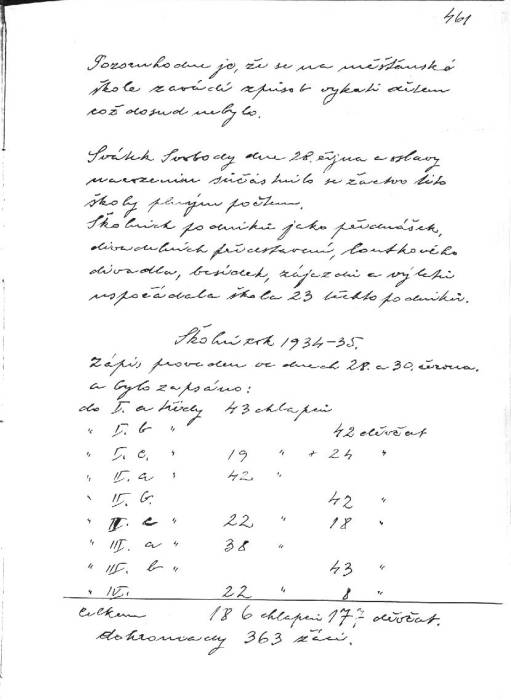 461
Pozoruhodno je, že se na měšťanské
škole zavádí způsob vykati dětem
což dosud nebylo.
Svátek Svobody dne 28. října a oslavy
narozenin súčástnilo se žactvo této
školy plným počtem.
Školních podniků jako přednášek,
divadelních představení, loutkového
divadla, besídek, zájezdů a výletů
uspořádala škola 23 těchto podniků.
Školní rok 1934-35.
Zápis proveden ve dnech 28. a 30. června.
a bylo zapsáno:
do I. a třídy 43 chlapců
" I. b " 42 děvčat
" I. c. " 19 " + 24 "
" II. a " 42 "
" II. b. 42 "
" II. c " 22 " 18 "
" III. a " 38 "
" III. b " 43 "
" IV. 22 " 8 "
Celkem 186 chlapců 177 děvčat.
dohromady 363 žáci.